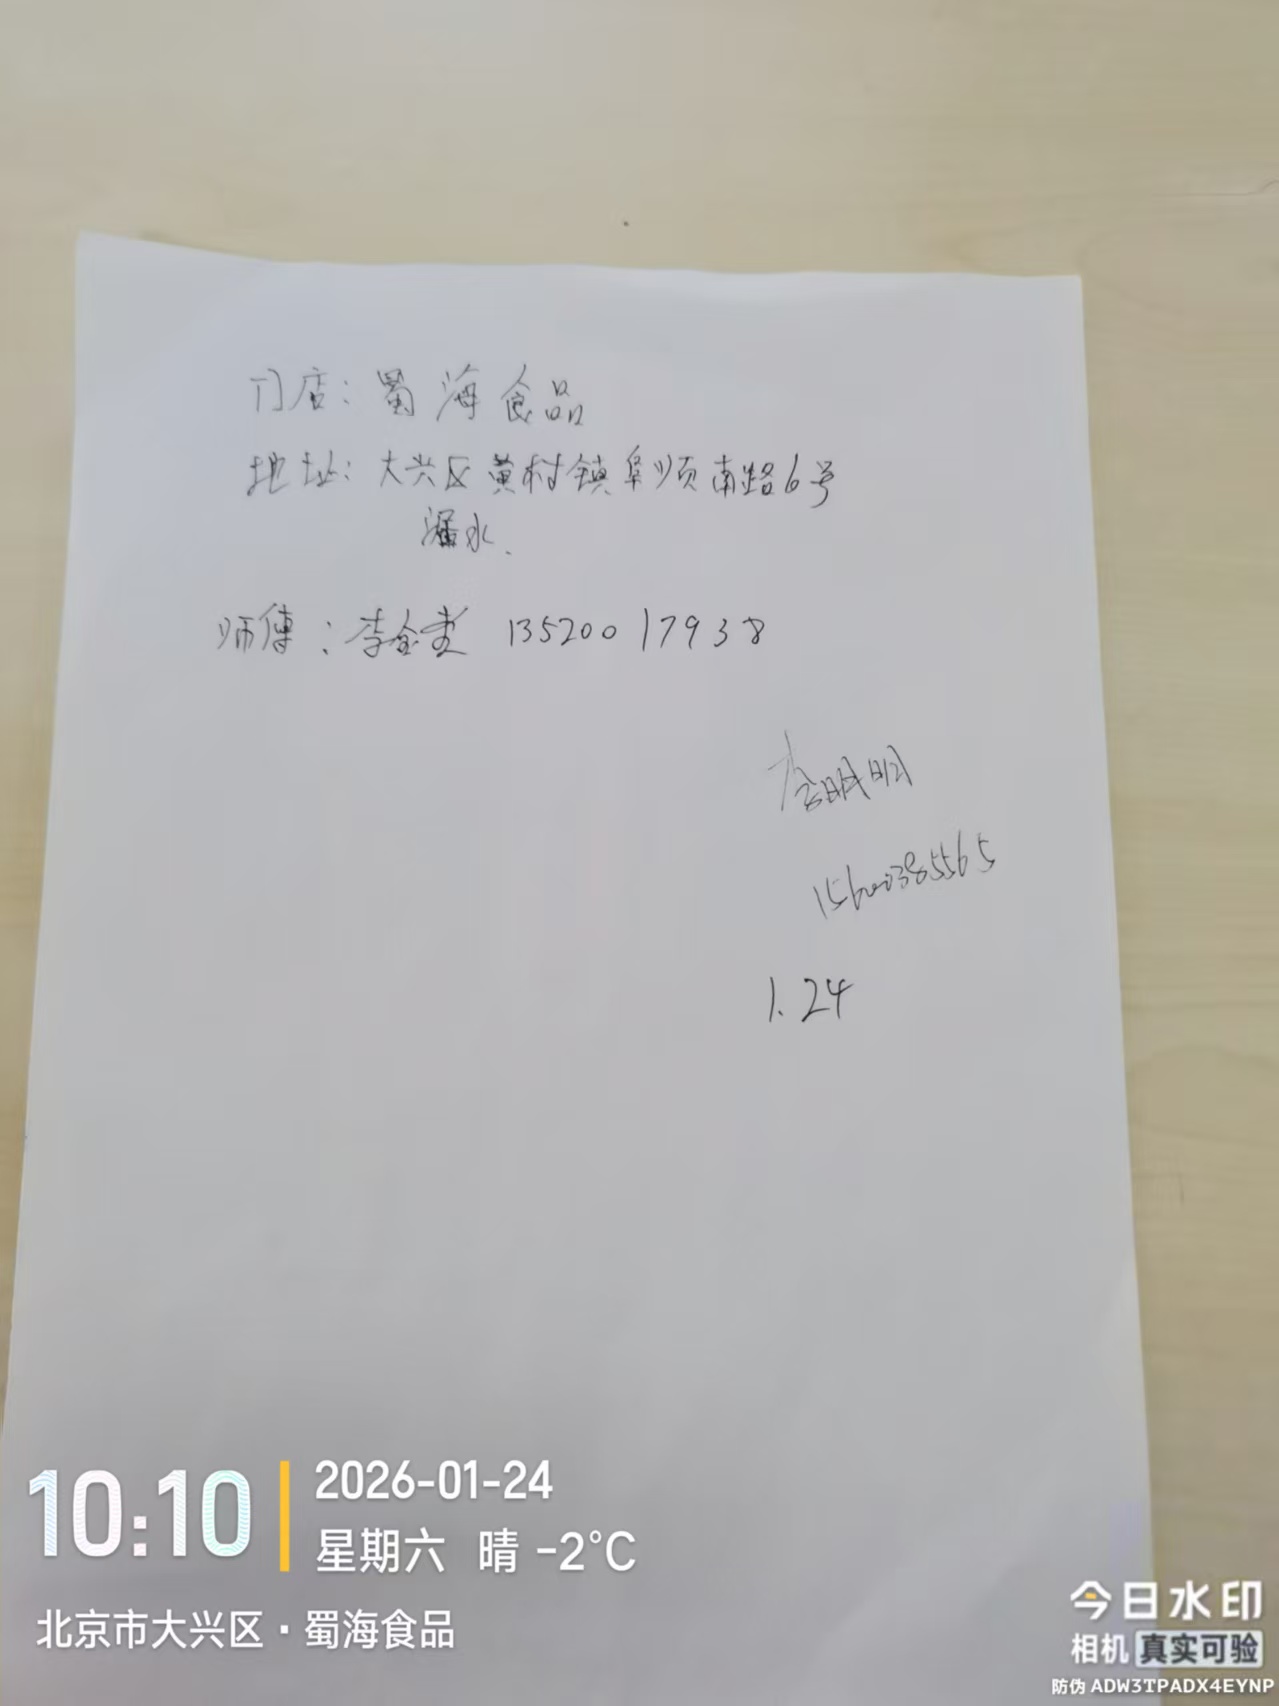 门店：蜀海食品
地址：大兴区黄村镇阜顺南路6号
漏水.
师傅：李金 13520017938
李明明
15600385565
1.24
10:10
2026-01-24
星期六 晴 -2℃
北京市大兴区·蜀海食品
今日水印
相机 真实可验
防伪 ADW3TPADX4EYNP